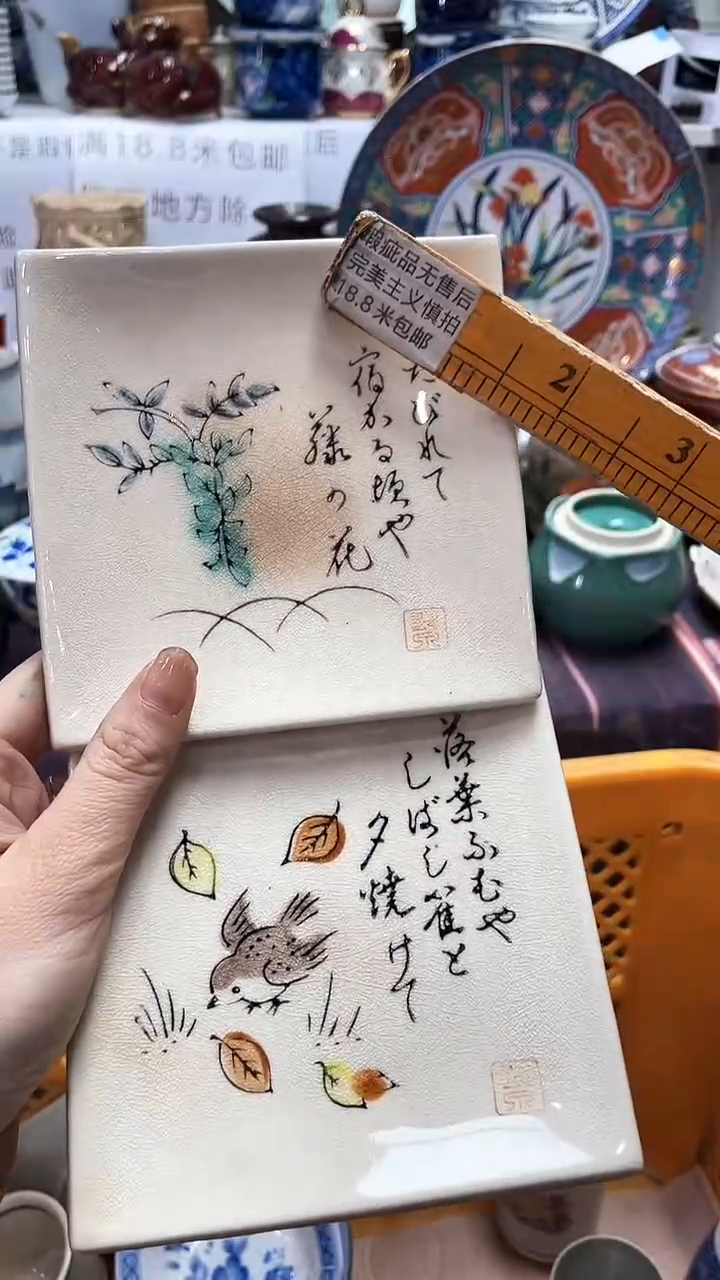 满18.8米包邮
地方除
瑕疵品无售后
完美主义慎拍
18.8米包邮
2
3
たびれて
宿かる頃や
藤の花
落葉ふむや
しばし雀と
夕焼けて